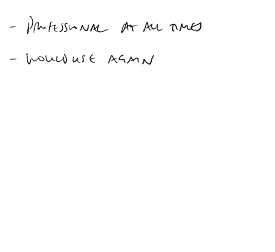 - PROFESSIONAL AT ALL TIMES
- WOULD USE AGAIN